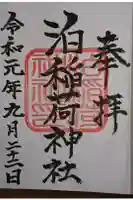 奉拝
泊稲荷神社
令和元年九月二十二日